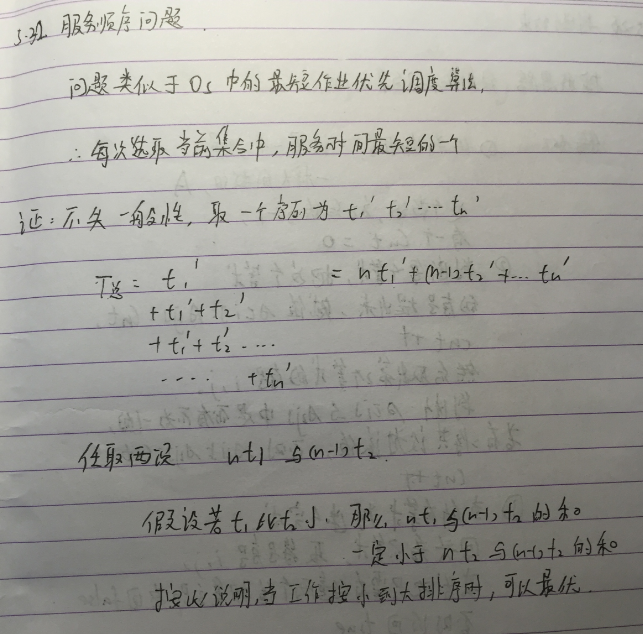 5.32 服务顺序问题.
问题类似于Os中的最短作业优先调度算法,
∴ 每次选取当前集合中,服务时间最短的一个
证:不失一般性,取一个序列为 t₁' t₂' ... tₙ'
T总 = t₁' = nt₁' + (n-1)t₂' + ... tₙ'
+ t₁' + t₂'
+ t₁' + t₂' ....
.... + tₙ'
任取两项 nt₁ 与 (n-1)t₂.
假设若 t₁ 比 t₂ 小. 那么 nt₁ 与 (n-1)t₂ 的和
一定小于 nt₂ 与 (n-1)t₂ 的和
按此说明,当工作按小到大排序时,可以最优.